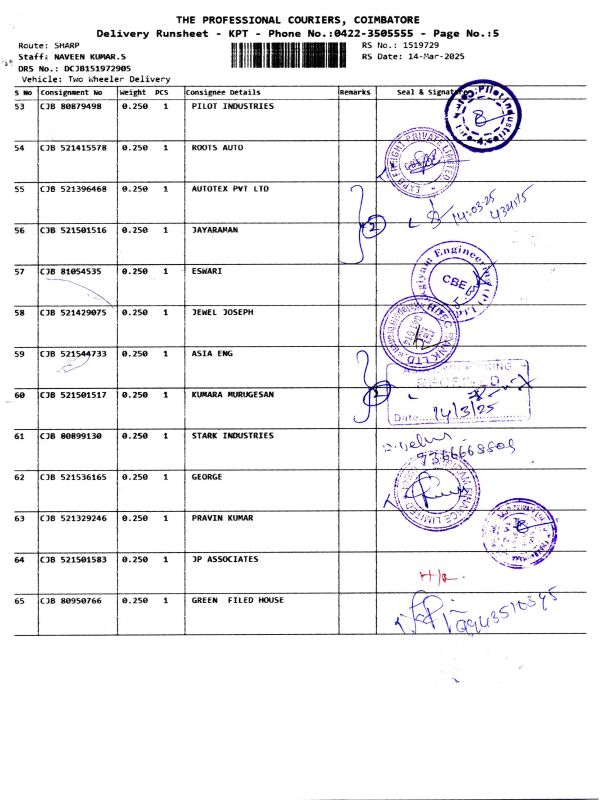 THE PROFESSIONAL COURIERS, COIMBATORE
Delivery Runsheet - KPT - Phone No.:0422-3505555 - Page No.:5
Route: SHARP
RS No.: 1519729
Staff: NAVEEN KUMAR.S
RS Date: 14-Mar-2025
DRS No.: DCJB151972905
Vehicle: Two Wheeler Delivery
S No Consignment No Weight PCS Consignee Details Remarks Seal & Signature
53 CJB 80879498 0.250 1 PILOT INDUSTRIES
54 CJB 521415578 0.250 1 ROOTS AUTO
55 CJB 521396468 0.250 1 AUTOTEX PVT LTD
2 14.03.25
56 CJB 521501516 0.250 1 JAYARAMAN
57 CJB 81054535 0.250 1 ESWARI
CBE
58 CJB 521429075 0.250 1 JEWEL JOSEPH
59 CJB 521544733 0.250 1 ASIA ENG
60 CJB 521501517 0.250 1 KUMARA MURUGESAN
2
Date 14/3/25
61 CJB 80899130 0.250 1 STARK INDUSTRIES
62 CJB 521536165 0.250 1 GEORGE
63 CJB 521329246 0.250 1 PRAVIN KUMAR
64 CJB 521501583 0.250 1 JP ASSOCIATES
H/R
65 CJB 80950766 0.250 1 GREEN FILED HOUSE
9943510395